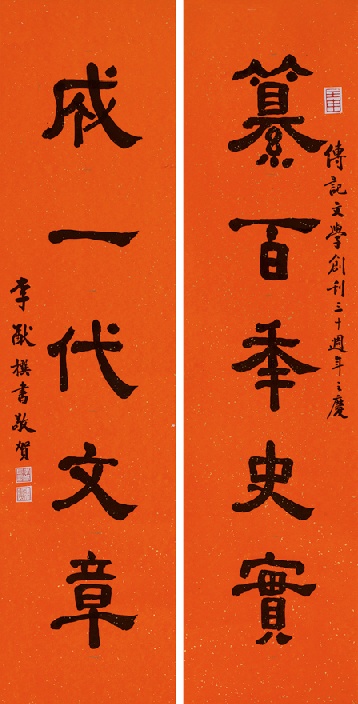 傳記文學創刊三十週年之慶
纂百秊史實
一代文章
李猷撰書敬賀